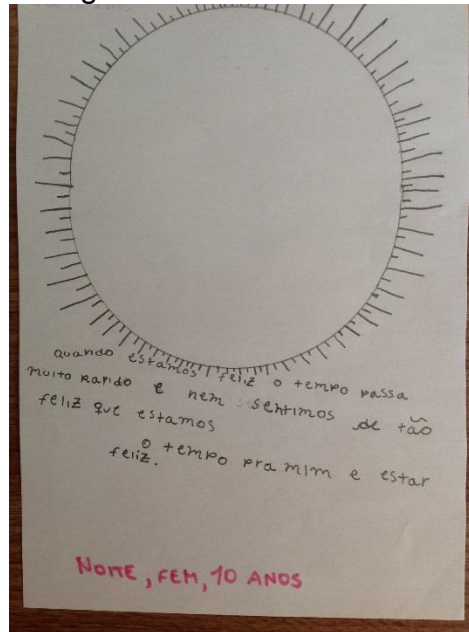 quando estamos feliz o tempo passa
muito rapido e nem sentimos de tão
feliz que estamos
o tempo pra mim e estar
feliz.
NOITE, FEM, 10 ANOS